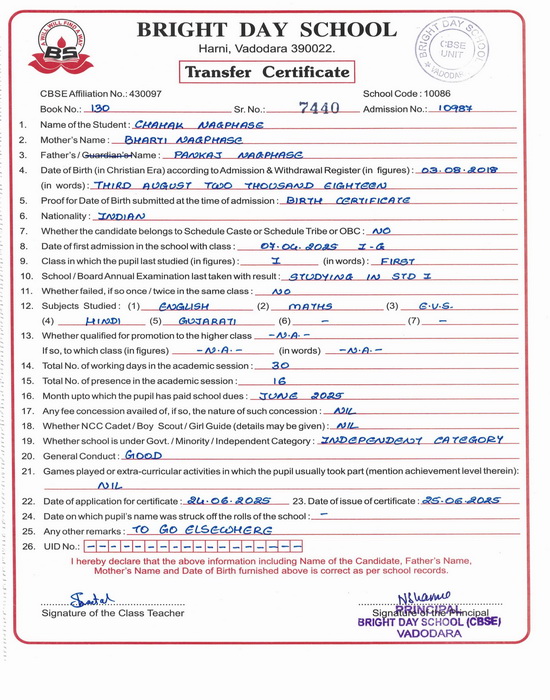 A WILL WILL FIND A WAY
BS
BRIGHT DAY SCHOOL
Harni, Vadodara 390022.
Transfer Certificate
BRIGHT DAY SCHOOL
CBSE
UNIT
VADODARA
CBSE Affiliation No.: 430097 School Code : 10086
Book No.: 130 Sr. No.: 7440 Admission No.: 10987
1. Name of the Student : CHAHAK NAGPHASE
2. Mother's Name : BHARTI NAGPHASE
3. Father's / Guardian's Name : PANKAJ NAGPHASE
4. Date of Birth (in Christian Era) according to Admission & Withdrawal Register (in figures) : 03.08.2018
(in words) : THIRD AUGUST TWO THOUSAND EIGHTEEN
5. Proof for Date of Birth submitted at the time of admission : BIRTH CERTIFICATE
6. Nationality : INDIAN
7. Whether the candidate belongs to Schedule Caste or Schedule Tribe or OBC : NO
8. Date of first admission in the school with class : 07.04.2025 I-G
9. Class in which pupil last studied (in figures) : I (in words) : FIRST
10. School / Board Annual Examination last taken with result : STUDYING IN STD I
11. Whether failed, if so once / twice in the same class : NO
12. Subjects Studied : (1) ENGLISH (2) MATHS (3) E.V.S.
(4) HINDI (5) GUJARATI (6) - (7) -
13. Whether qualified for promotion to the higher class -N.A.-
If so, to which class (in figures) -N.A.- (in words) -N.A.-
14. Total No. of working days in the academic session : 30
15. Total No. of presence in the academic session : 16
16. Month upto which the pupil has paid school dues : JUNE 2025
17. Any fee concession availed of, if so, the nature of such concession : NIL
18. Whether NCC Cadet / Boy Scout / Girl Guide (details may be given) : NIL
19. Whether school is under Govt. / Minority / Independent Category : INDEPENDENT CATEGORY
20. General Conduct : GOOD
21. Games played or extra-curricular activities in which the pupil usually took part (mention achievement level therein) :
NIL
22. Date of application for certificate : 24.06.2025 23. Date of issue of certificate : 25.06.2025
24. Date on which pupil's name was struck off the rolls of the school : -
25. Any other remarks : TO GO ELSEWHERE
26. UID No.: - - - - - - - - - - - - - - - -
I hereby declare that the above information including Name of the Candidate, Father's Name,
Mother's Name and Date of Birth furnished above is correct as per school records.
Signature of the Class Teacher Signature of the Principal
PRINCIPAL
BRIGHT DAY SCHOOL (CBSE)
VADODARA